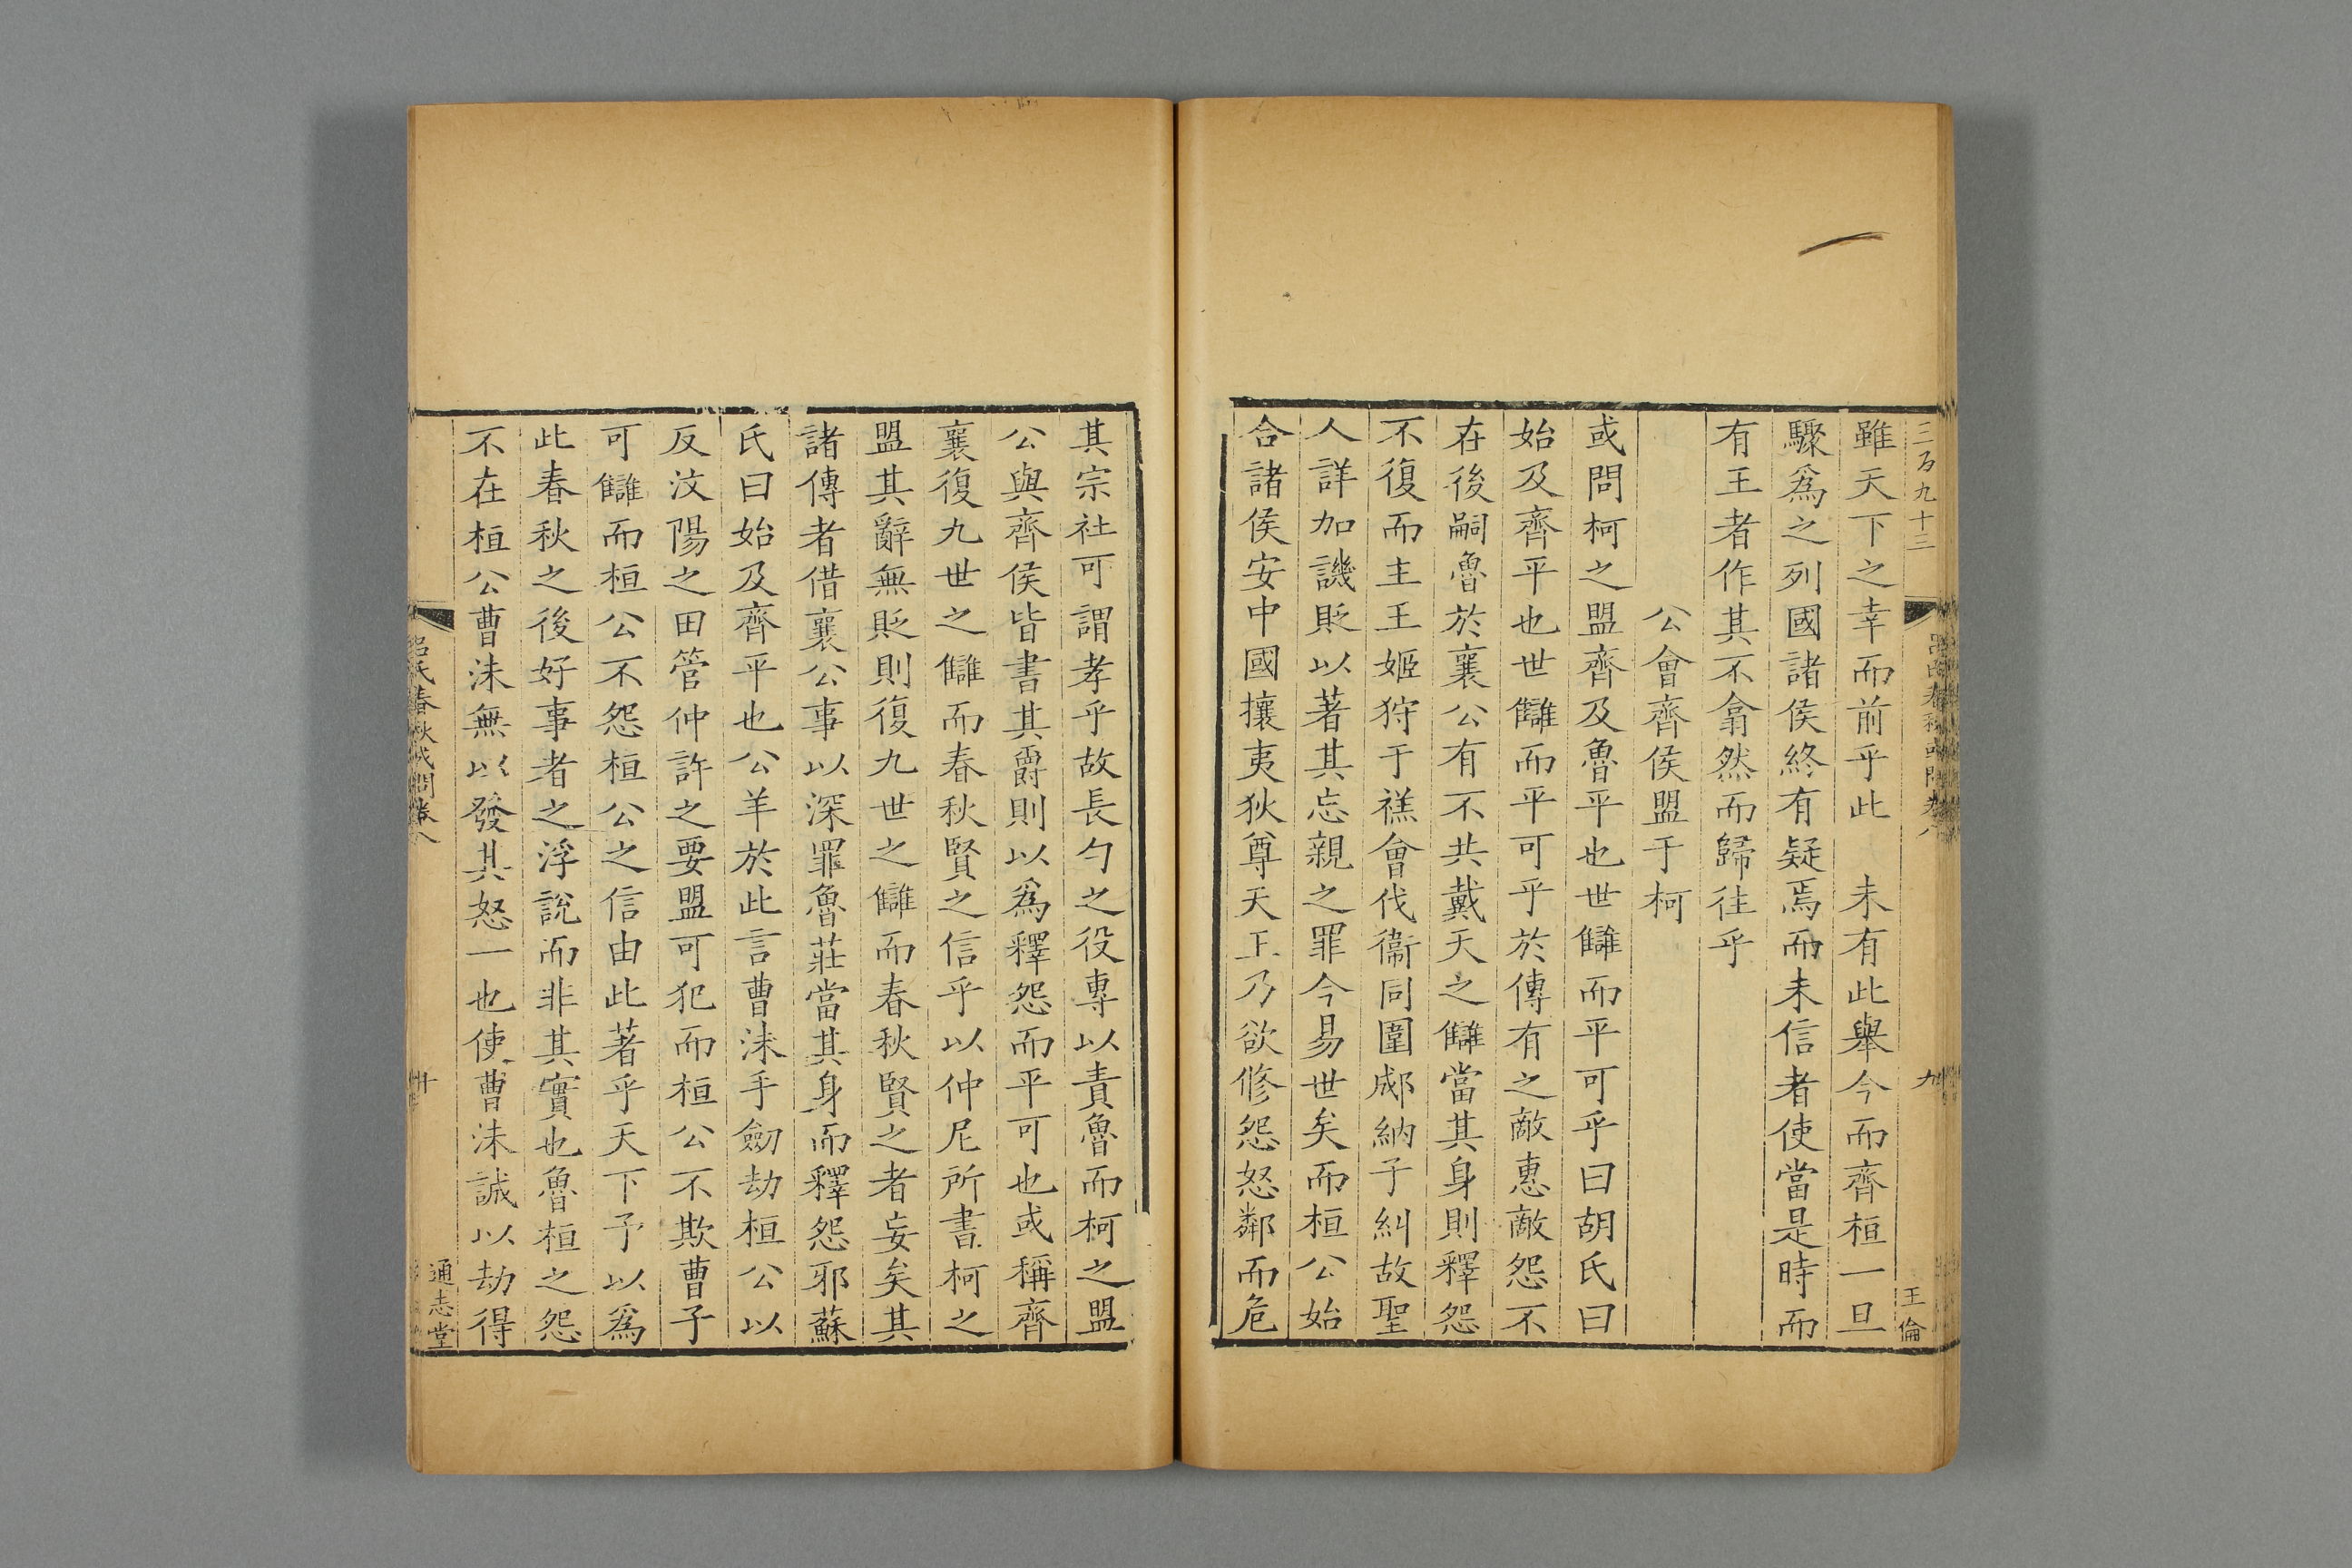 三百九十三
雖天下之幸而前乎此 未有此舉今而齊桓一旦
驟爲之列國諸侯終有疑焉而未信者使當是時而
有王者作其不翕然而歸往乎
公會齊侯盟于柯
或問柯之盟齊及魯平也世讎而平可乎曰胡氏曰
始及齊平也世讎而平可乎於傳有之敵惠敵怨不
在後嗣魯於襄公有不共戴天之讎當其身則釋怨
不復而主王姬狩于禚會伐衞同圍郕納子糾故聖
人詳加譏貶以著其忘親之罪今易世矣而桓公始
合諸侯安中國攘夷狄尊天王乃欲修怨怒鄰而危
九
王倫
其宗社可謂孝乎故長勺之役專以責魯而柯之盟
公與齊侯皆書其爵則以爲釋怨而平可也或稱齊
襄復九世之讎而春秋賢之信乎以仲尼所書柯之
盟其辭無貶則復九世之讎而春秋賢之者妄矣其
諸傳者借襄公事以深罪魯莊當其身而釋怨邪蘇
氏曰始及齊平也公羊於此言曹沬手劒劫桓公以
反汶陽之田管仲許之要盟可犯而桓公不欺曹子
可讎而桓公不怨桓公之信由此著乎天下予以爲
此春秋之後好事者之浮說而非其實也魯桓之怨
不在桓公曹沬無以發其怒一也使曹沬誠以劫得
呂氏春秋或問卷八
十
通志堂